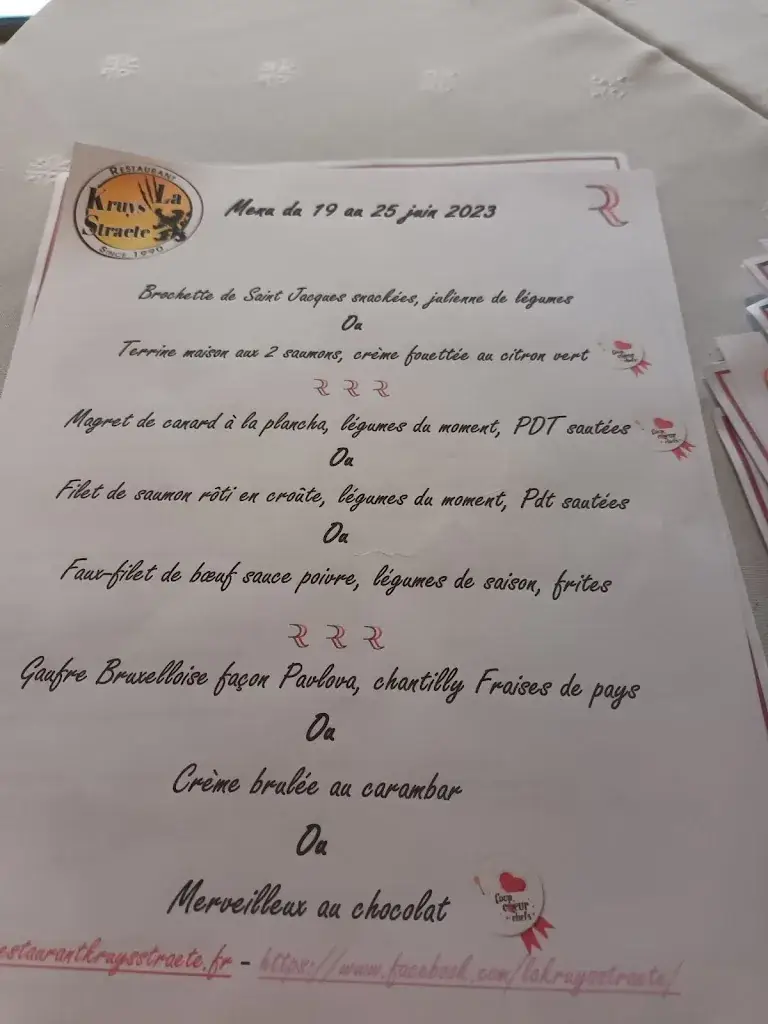 RESTAURANT
La
Kruys
Straete
SINCE 1990
Menu du 19 au 25 juin 2023
Brochette de Saint Jacques snackées, julienne de légumes
Ou
Terrine maison aux 2 saumons, crème fouettée au citron vert
Coup de cœur des chefs
Magret de canard à la plancha, légumes du moment, PDT sautées
Ou
Filet de saumon rôti en croûte, légumes du moment, Pdt sautées
Ou
Faux-filet de bœuf sauce poivre, légumes de saison, frites
Gaufre Bruxelloise façon Pavlova, chantilly Fraises de pays
Ou
Crème brulée au carambar
Ou
Merveilleux au chocolat
Coup de cœur des chefs
estaurantkruysstraete.fr - https://www.facebook.com/lakruysstraete/